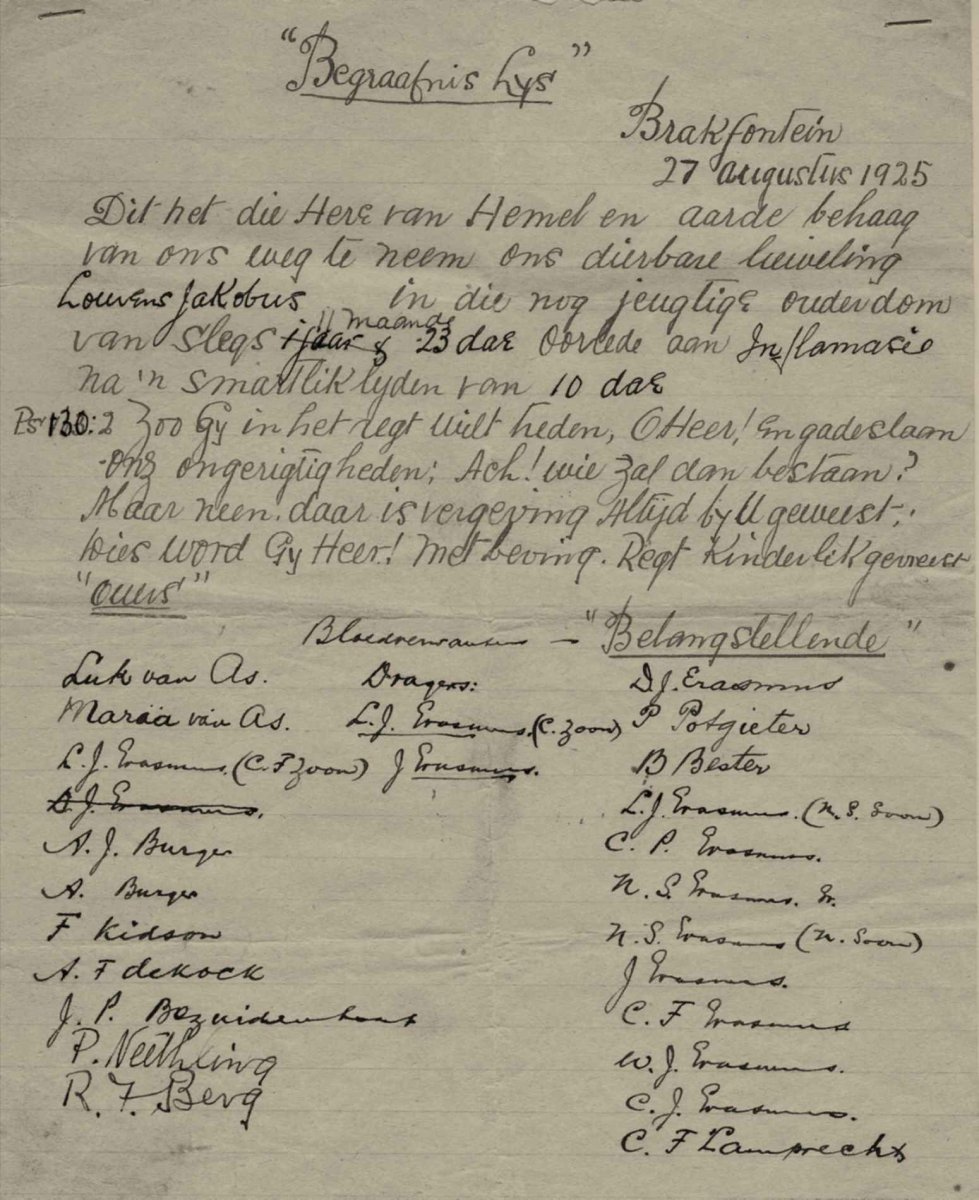 "Begraafnis Lys"
Brakfontein
27 Augustus 1925
Dit het die Here van Hemel en aarde behaag
van ons weg te neem ons dierbare lieweling
Louwens Jakobus in die nog jeugtige ouderdom
11 maande
van slegs 1 jaar & 23 dae Oorlede aan Inflamasie
na 'n smartlik lyden van 10 dae
Ps 130:2 Zoo Gy in het regt wilt treden, O Heer! En gadeslaan
Onz ongerigtigheden; Ach! wie zal dan bestaan?
Maar neen. daar is vergeving Altijd by U geweest;
Dies word Gy Heer! Met beving. Regt Kinderlik gevreest
"Ouers"
Bloedverwanten — "Belangstellende"
Luk van As. Dragers: D.J. Erasmus
Maraa van As. L.J. Erasmus. (C. Zoon) P Potgieter
L.J. Erasmus. (C.F Zoon) J Erasmus. B Bester
D.J. Erasmus. L.J. Erasmus. (N.S. Soon)
A.J. Burger C. P. Erasmus.
A. Burger N. S. Erasmus. Sr.
F Kidson N.S. Erasmus (N. Soon)
A. F de Kock J Erasmus.
J. P. Bezuidenhout C. F Erasmus
P. Neethling W. J. Erasmus.
R. F. Berg C. J. Erasmus.
C. F Lamprecht